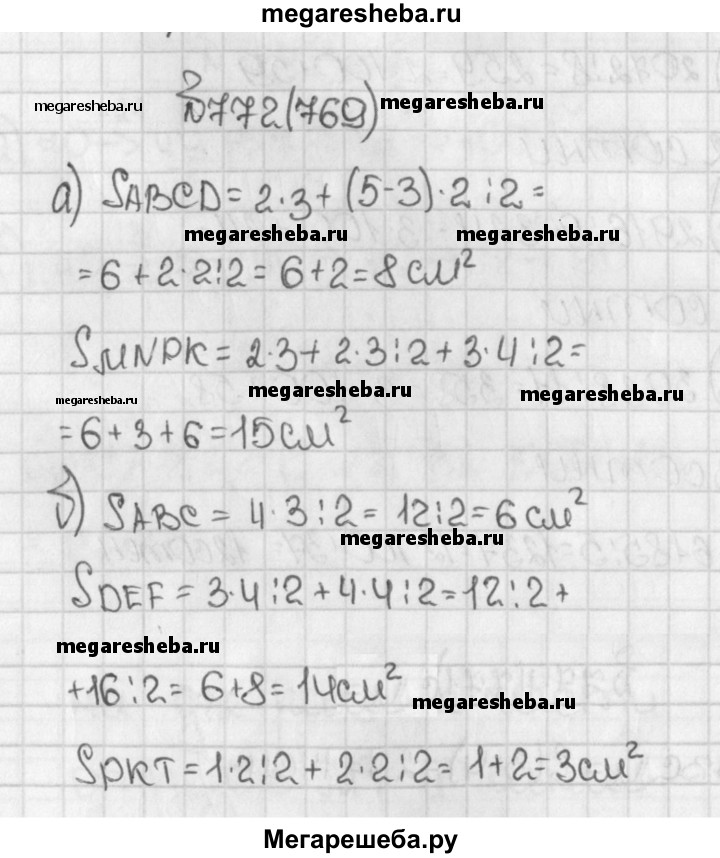 megaresheba.ru
megaresheba.ru №772(769) megaresheba.ru
а) SABCD = 2·3+(5-3)·2:2=
megaresheba.ru megaresheba.ru
=6+2·2:2=6+2=8см²
SMNPK=2·3+2·3:2+3·4:2=
megaresheba.ru megaresheba.ru megaresheba.ru
=6+3+6=15см²
б) SABC = 4·3:2=12:2=6см²
megaresheba.ru
SDEF=3·4:2+4·4:2=12:2+
megaresheba.ru
+16:2=6+8=14см²
megaresheba.ru
SPKT=1·2:2+2·2:2=1+2=3см²
Мегарешеба.ру